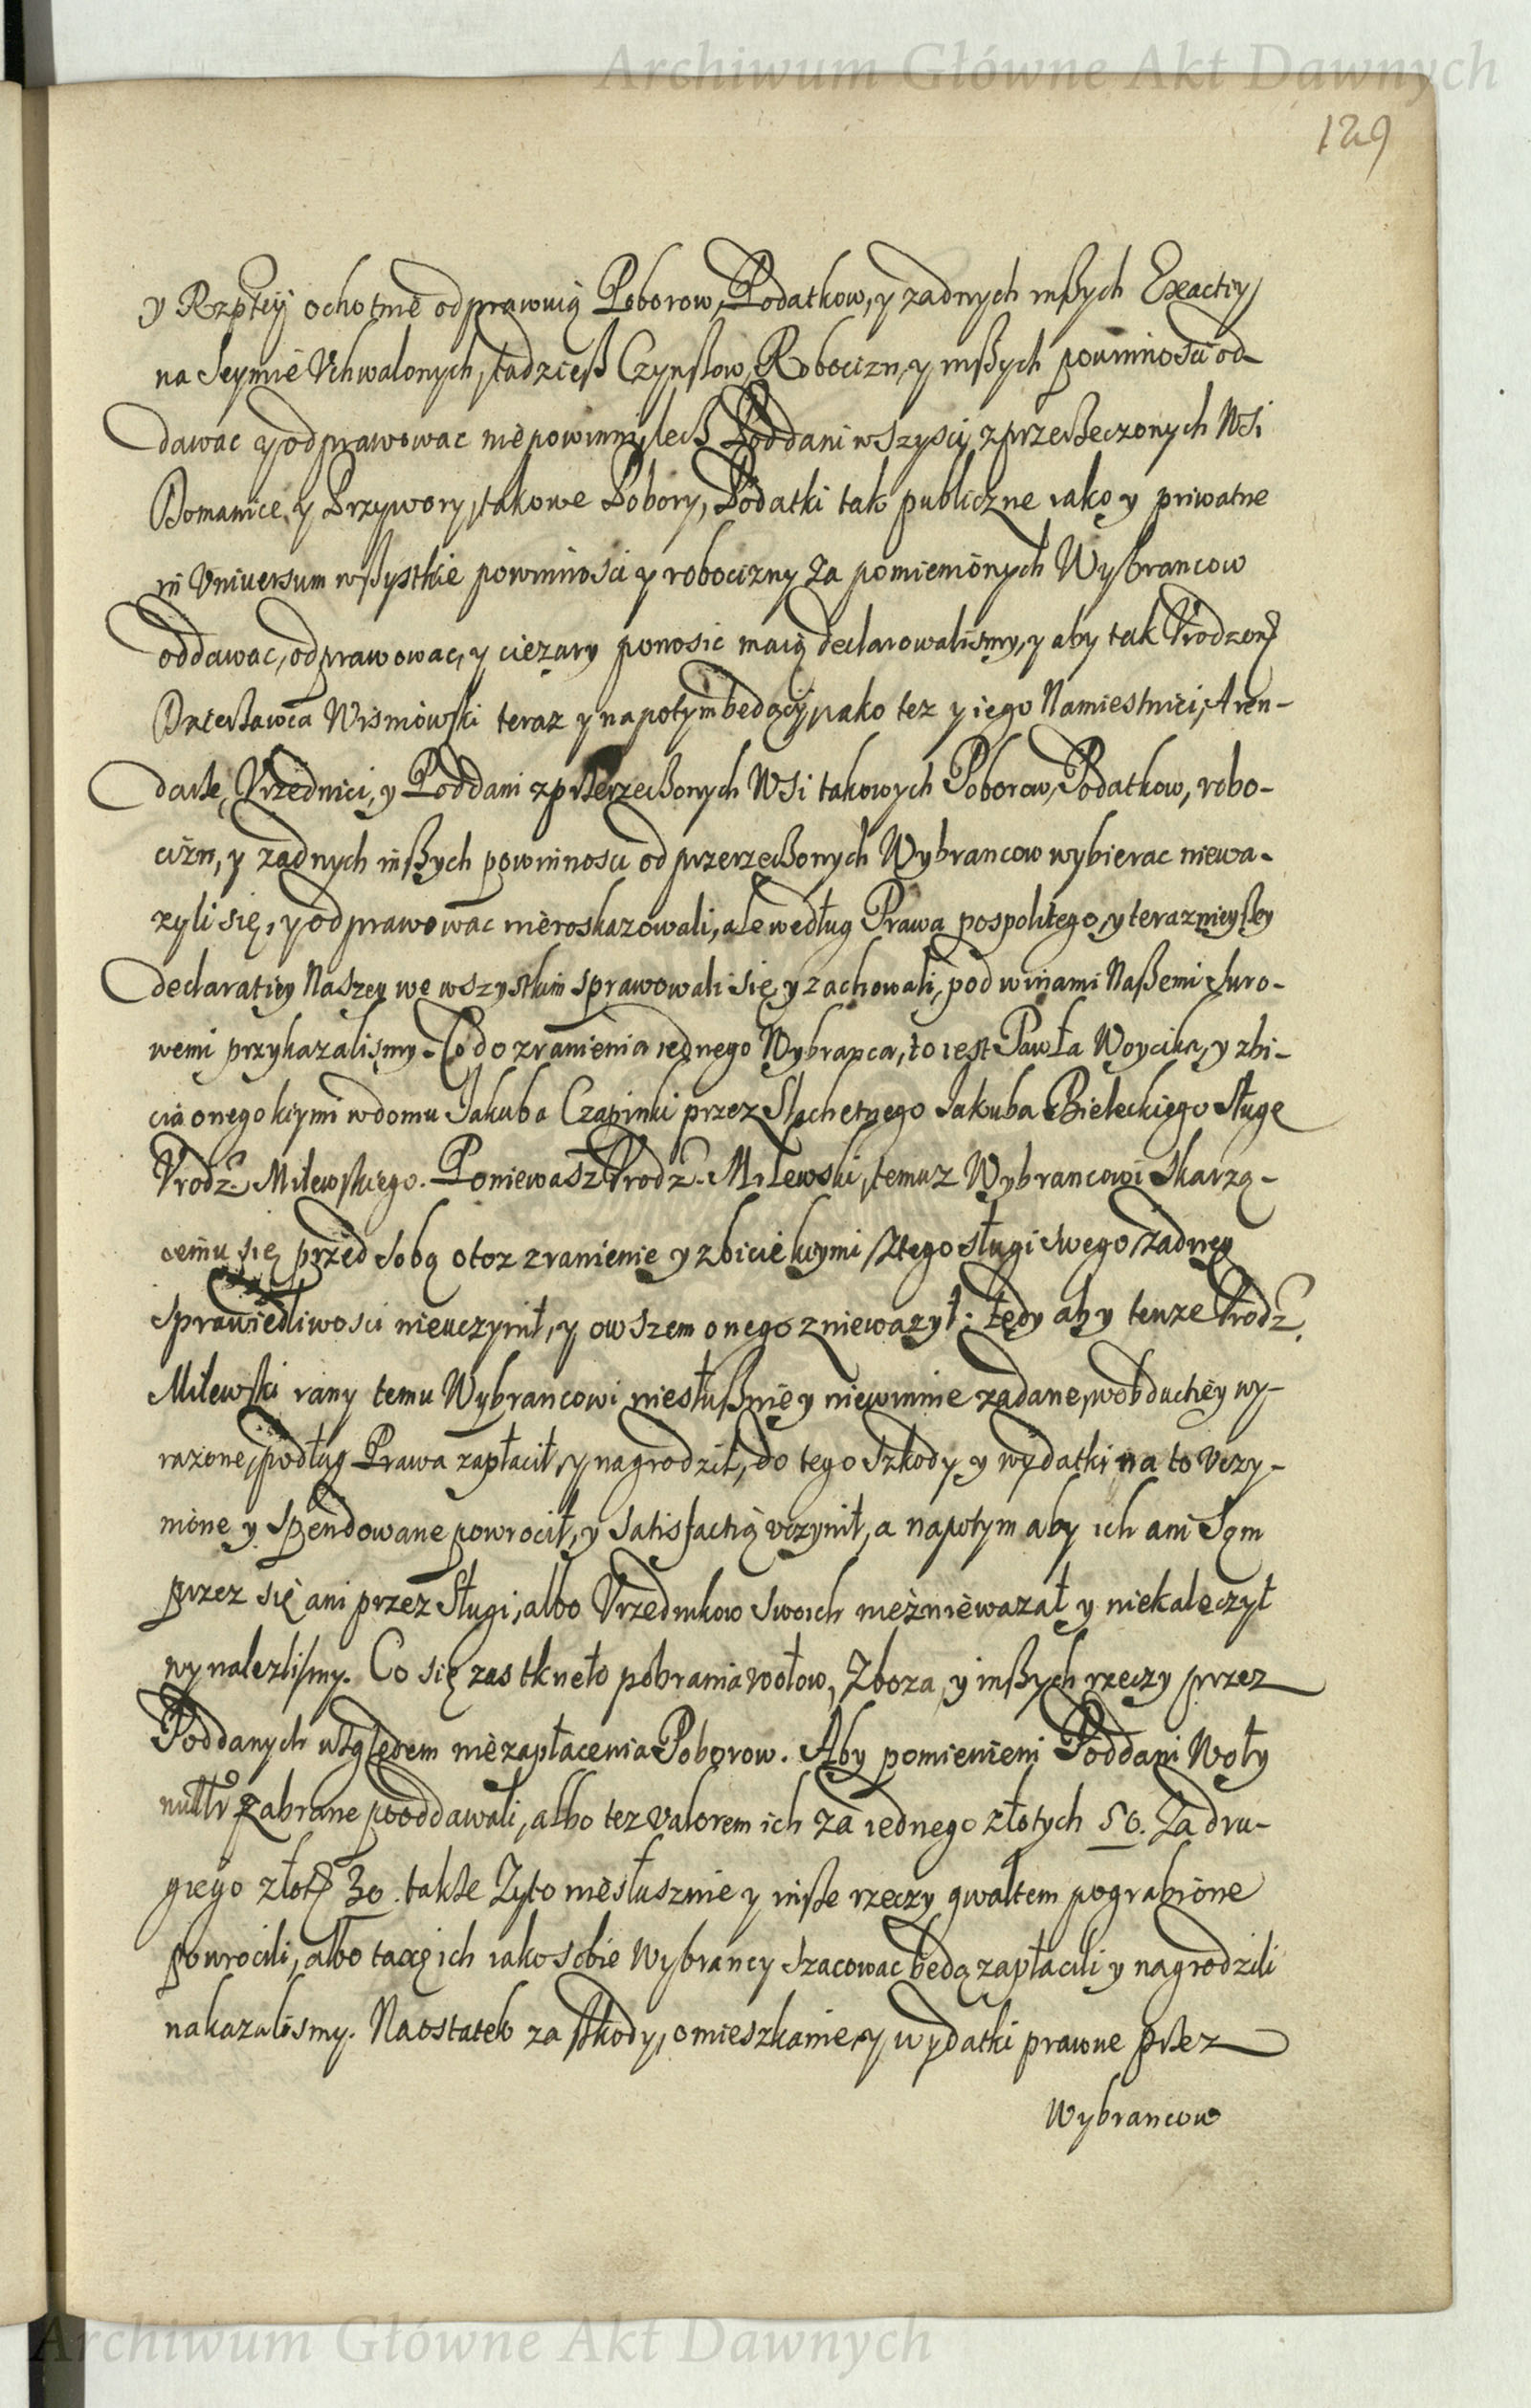 Archiwum Główne Akt Dawnych
129
y Rzptey ochotnie odprawuią Poborow, Podatkow, y zadnych inßych Exactiy
na Seymie Vchwalonych, tadzieß Czynßow, Robocizn y inßych powinnosci od-
dawac y odprawowac nie powinni, lecß Poddani wszyscy z przerzeczonych Wsi
Domanice y Przywory, takowe Pobory, Podatki tak publiczne iako y priwatne
in Vniversum wßystkie powinnosci y robocizny za pomienionych Wybrancow
oddawac, odprawowac, y ciezary ponosic maią declarowalismy, y aby tak Vrodzony
Dzierzawca Wismowski teraz y napotym bedący, iako tez y iego Namiestnici, Aren-
darze, Vrzednici, y Poddani z przerzeczonych Wsi takowych Poborow, Podatkow, robo-
cizn, y zadnych inßych powinnosci od przerzeczonych Wybrancow wybierac niewa-
zyli się, y odprawowac nieroskazowali, ale według Prawa pospolitego, y teraznieyßey
declaratiey Naszey we wszystkim sprawowali się y zachowali, pod winami Naßemi suro-
wemi przykazalismy. Co do zranienia iednego Wybranca, to iest Pawła Woycika, y zbi-
cia onego kiymi w domu Jakuba Czapinki przez Slachetnego Jakuba Bieleckiego Sługę
Vrodz. Milewskiego. Poniewasz Vrodz. Milewski, temuz Wybrancowi skarzą-
cemu się przed sobą o toz zranienie y zbicie kiymi z tego sługi swego zadney
sprawiedliwosci nieuczynił, y owszem onego zniewazył: tedy aby tenze Vrodz.
Milewski rany temu Wybrancowi niesłußnie y niewinnie zadane, w obductiey wy-
razone, podług Prawa zapłacił, y nagrodził, do tego szkody y wydatki na to vczy-
nione y spendowane powrocił, y satisfactią vczynił, a napotym aby ich ani sąm
przez się ani przez Sługi, albo Vrzednikow swoich nie zniewazał y niekaleczył
wynalezlismy. Co się zas tkneło pobrania wołow, Zboza, y inßych rzeczy przez
Poddanych względem niezapłacenia Poborow. Aby pomienieni Poddani Woły
zabrane pooddawali, albo tez valorem ich za iednego złotych 50. Za dru-
giego złoty 30. takze Zyto niesłusznie y inße rzeczy gwałtem pograbione
powrocili, albo taxę ich iako sobie Wybrancy szacowac będą zapłacili y nagrodzili
nakazalismy. Naostatek za szkody, omieszkanie, y wydatki prawne przez
Wybrancow
Archiwum Główne Akt Dawnych